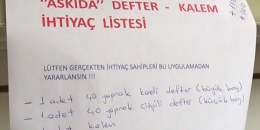 "ASKIDA" DEFTER - KALEM
İHTİYAÇ LİSTESİ
LÜTFEN GERÇEKTEN İHTİYAÇ SAHİPLERİ BU UYGULAMADAN
YARARLANSIN !!!
- 1 adet 40 yaprak kareli defter (büyük boy)
- 1 adet 40 yaprak çizgili defter (küçük boy)
adet kalem